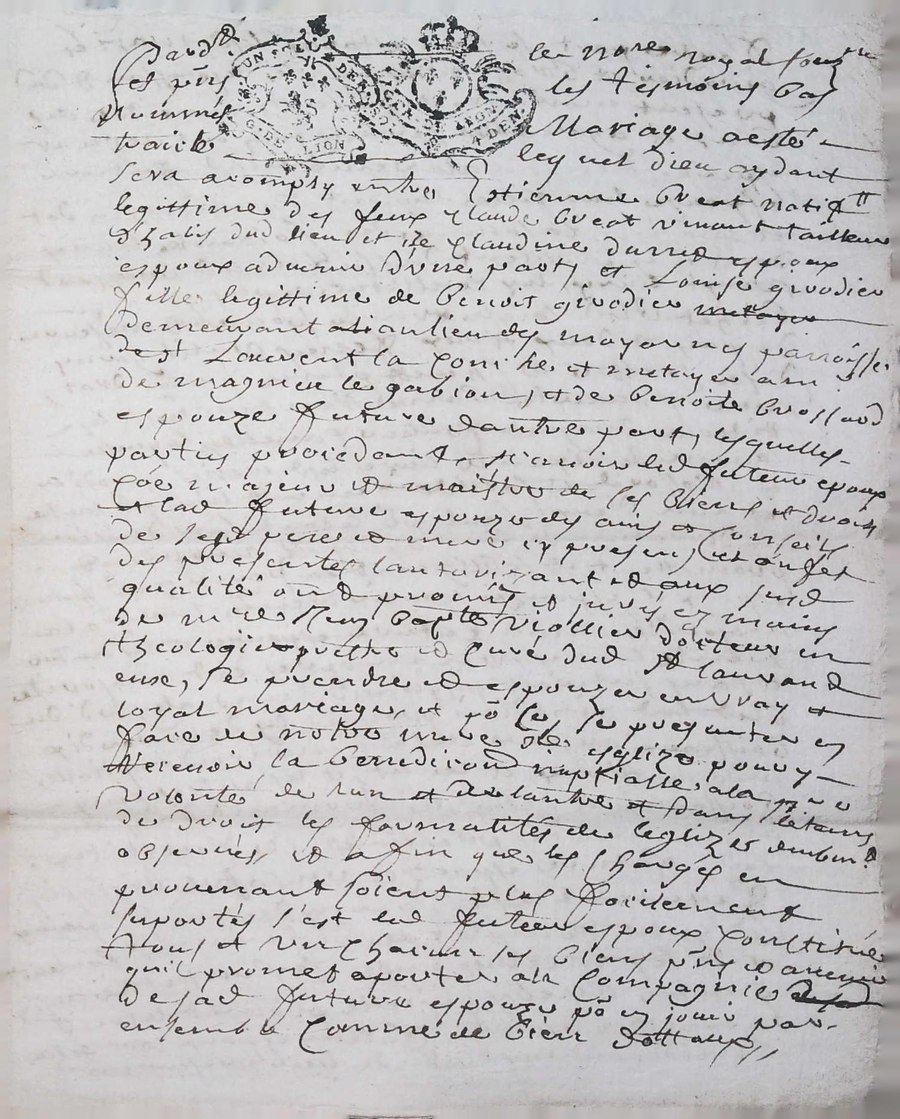 Pard^t le no^re royal souz^ne
et p̃n̄s les tesmoins bas
nommés Mariage a esté
traicté lequel dieu aydant
sera acomply entre Estienne breat natif
legittime des feux Claude breat vivant tailleur
d'habis dud lieu et de Claudine durred espoux
espoux advenir d'une part, et Louise givodier
fille legittime de benois givodier metayer
demeurant au lieu des mayornes parroisse
de st Laurent la Conche et metayer a m^r
de magnieu le gabion, et de benoite brossard
espouze future dautre part, lesquelles
parties procedant, sçavoir led futeur espoux
Co͞e majeur et maistre de ses biens et droits
et lad future espouze des avis et Conseils
de sesd pere et mere icy presens, et a leffet
des presentes lauthorizant et aux susd
qualité ont promis et jurés es mains
de m^re Jean bap^te Viollier docteur en
theologie prestre et Curé dud st laurand
en se, se prendre et espouzer en vray et
loyal mariage, et po^r ce, se presenter en
face de nostre mere S^te esglize pour y
recevoir la benediction nuptialle a la p^re
volonté de lun et de lautre et dans le temps
de droit les formalités de leglize duëm^t
observées, et afin que les Charges en
provenant soient plus facilement
suportés s'est led futeur espoux Constitué
tous et un chacun ses biens p̃n̄s et avenir
quil promet aporter a la Compagnie
de sad future espouze po^r en jouir par
ensemble Comme de bien dottaux,,
UN SOL
DEN
G. DE LION
DEN